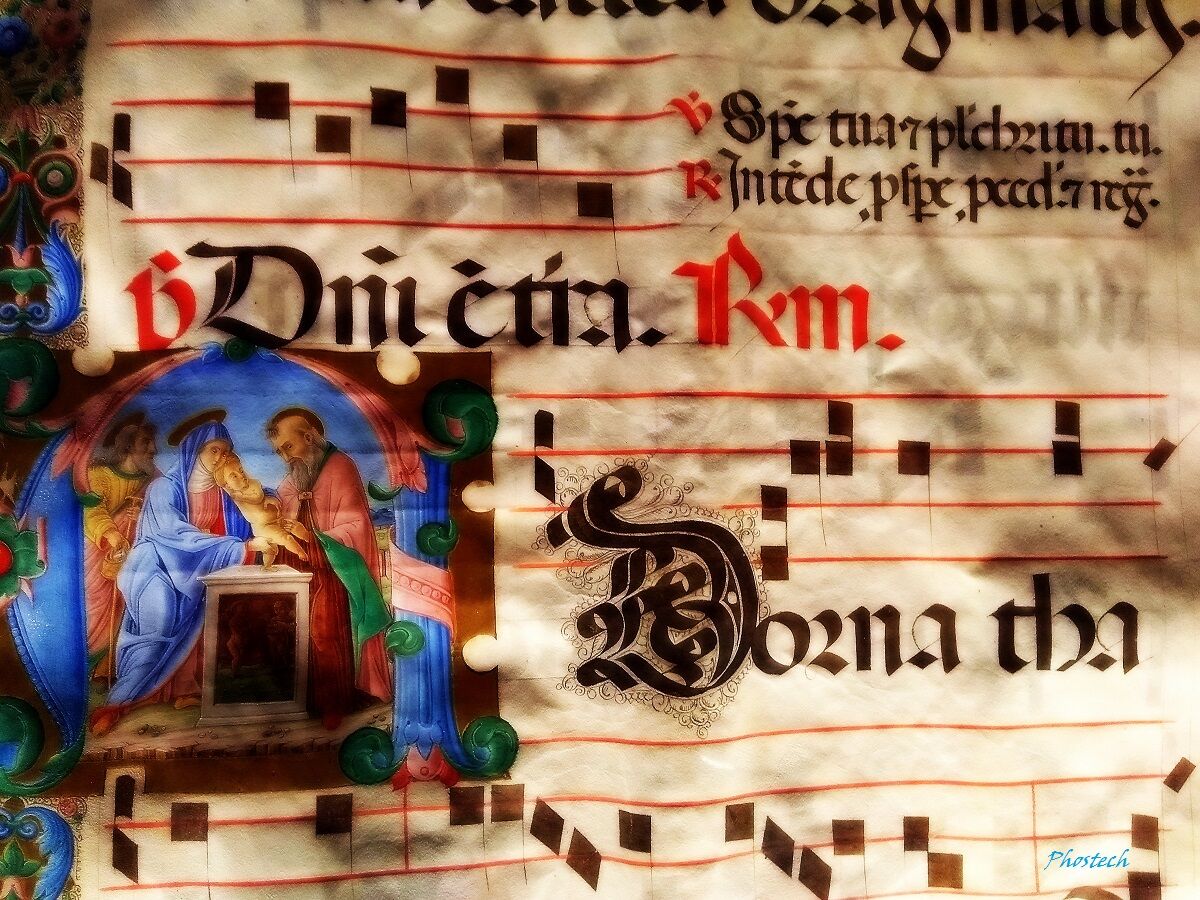 ℣ Spē tua ⁊ pl'chritu. tu.
℟ Intēde, ꝓsꝑe, ꝓced'. ⁊ reg̃.
℣ Dn̄i c̄tīa. Rm.
A Dorna tha
Phostech